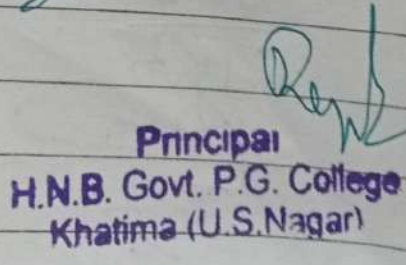 Principal
H.N.B. Govt. P.G. College
Khatima (U.S.Nagar)